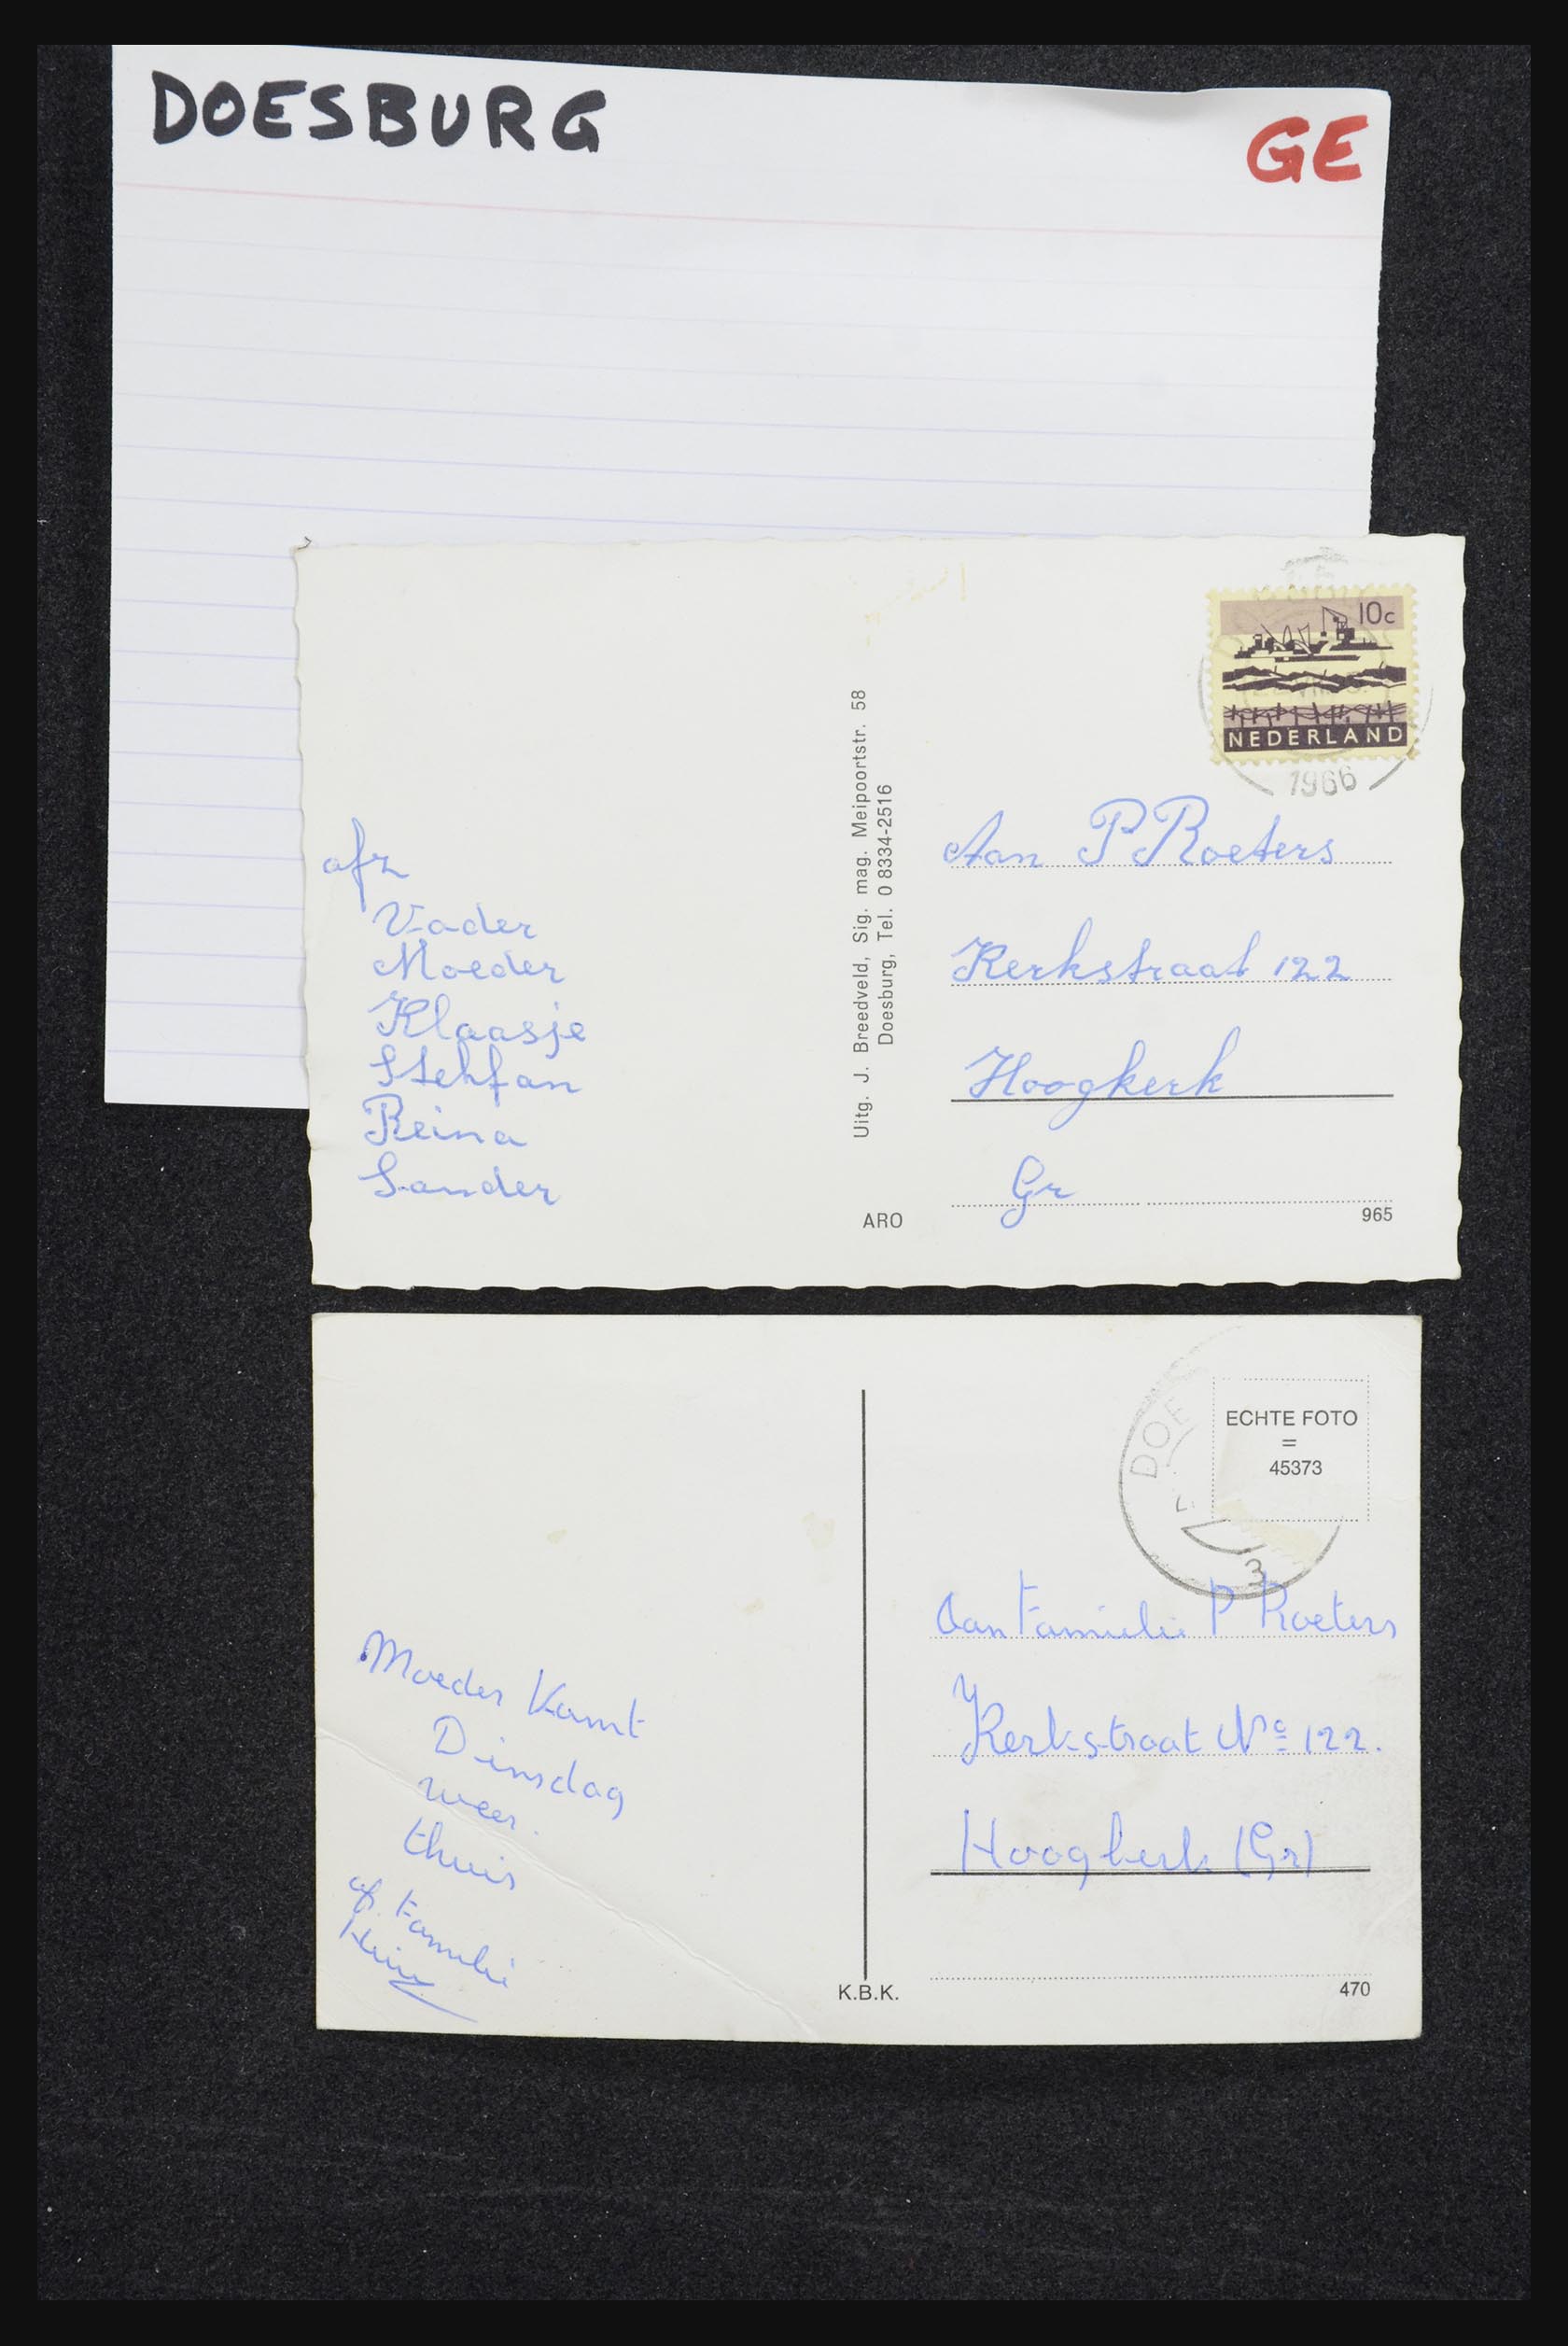 DOESBURG
GE
10c
NEDERLAND
1966
afz
Vader
Moeder
Klaasje
Stehfan
Reina
Sander
Uitg. J. Breedveld, Sig. mag. Meipoortstr. 58
Doesburg, Tel. 0 8334-2516
Aan P Roeters
Kerkstraat 122
Hoogkerk
Gr
ARO
965
DOE
ECHTE FOTO
=
45373
3
Moeder Komt
Dinsdag
weer.
thuis
af. Familie
Aan Familie P Roeters
Kerkstraat No 122.
Hoogkerk (Gr)
K.B.K.
470